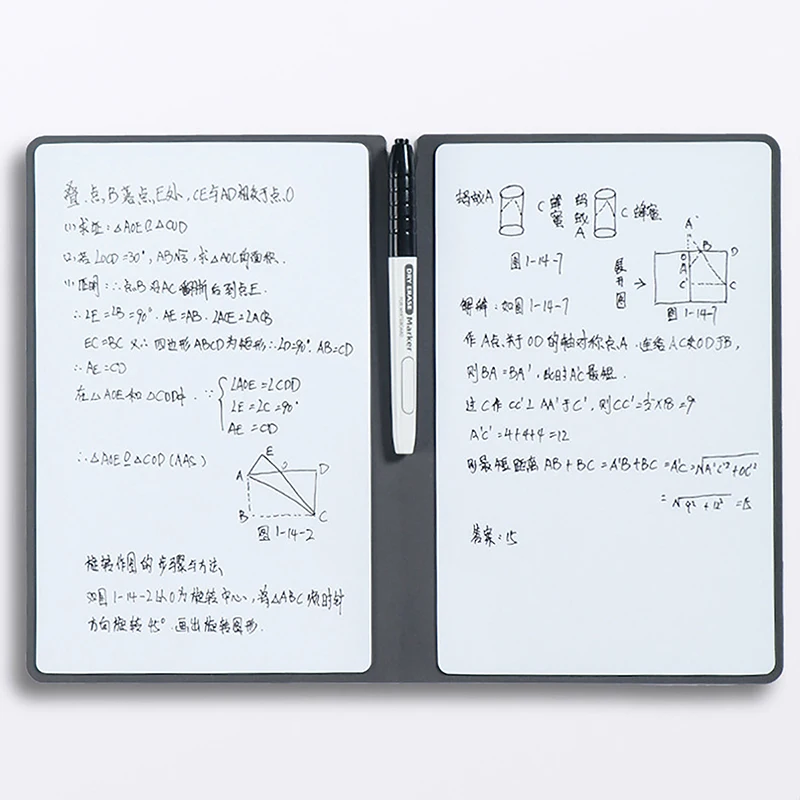 叠.点,B落点,E处,CE与AD相交于点,O
(1)求证:△AOE≌△COD
(2)若∠OCD=30°,AB=√3,求△AOC的面积.
(1)证明:∴点B沿AC翻折后到点E.
∴∠E=∠B=90°.AE=AB.∠ACE=∠ACB
EC=BC 又∵四边形ABCD为矩形∴∠D=90°.AB=CD
∴AE=CD
在△AOE和△COD中.∵
∠AOE=∠COD
∠E=∠C=90°
AE=CD
∴△AOE≌△COD(AAS)
E
A
O
D
B
C
图1-14-2
旋转作图的步骤与方法,
如图1-14-2以O为旋转中心,将△ABC顺时针
方向旋转45°.画出旋转图形.
DRY ERASE Marker
蚂蚁A
C蜂蜜
蚂蚁A
C蜂蜜
图1-14-7
展开图
A'
B
D
O
A
C'
C
图1-14-7
解释:如图1-14-7
作A点,关于OD的轴对称点,A.连结A,C交OD于B,
则BA=BA',此时A'C最短.
过C作CC'⊥AA'于C',则CC'=½×18=9
A'C'=4+4+4=12
则最短距离AB+BC=A'B+BC=A'C=√A'C'²+CC'²
=√9²+12²=15
答案:15